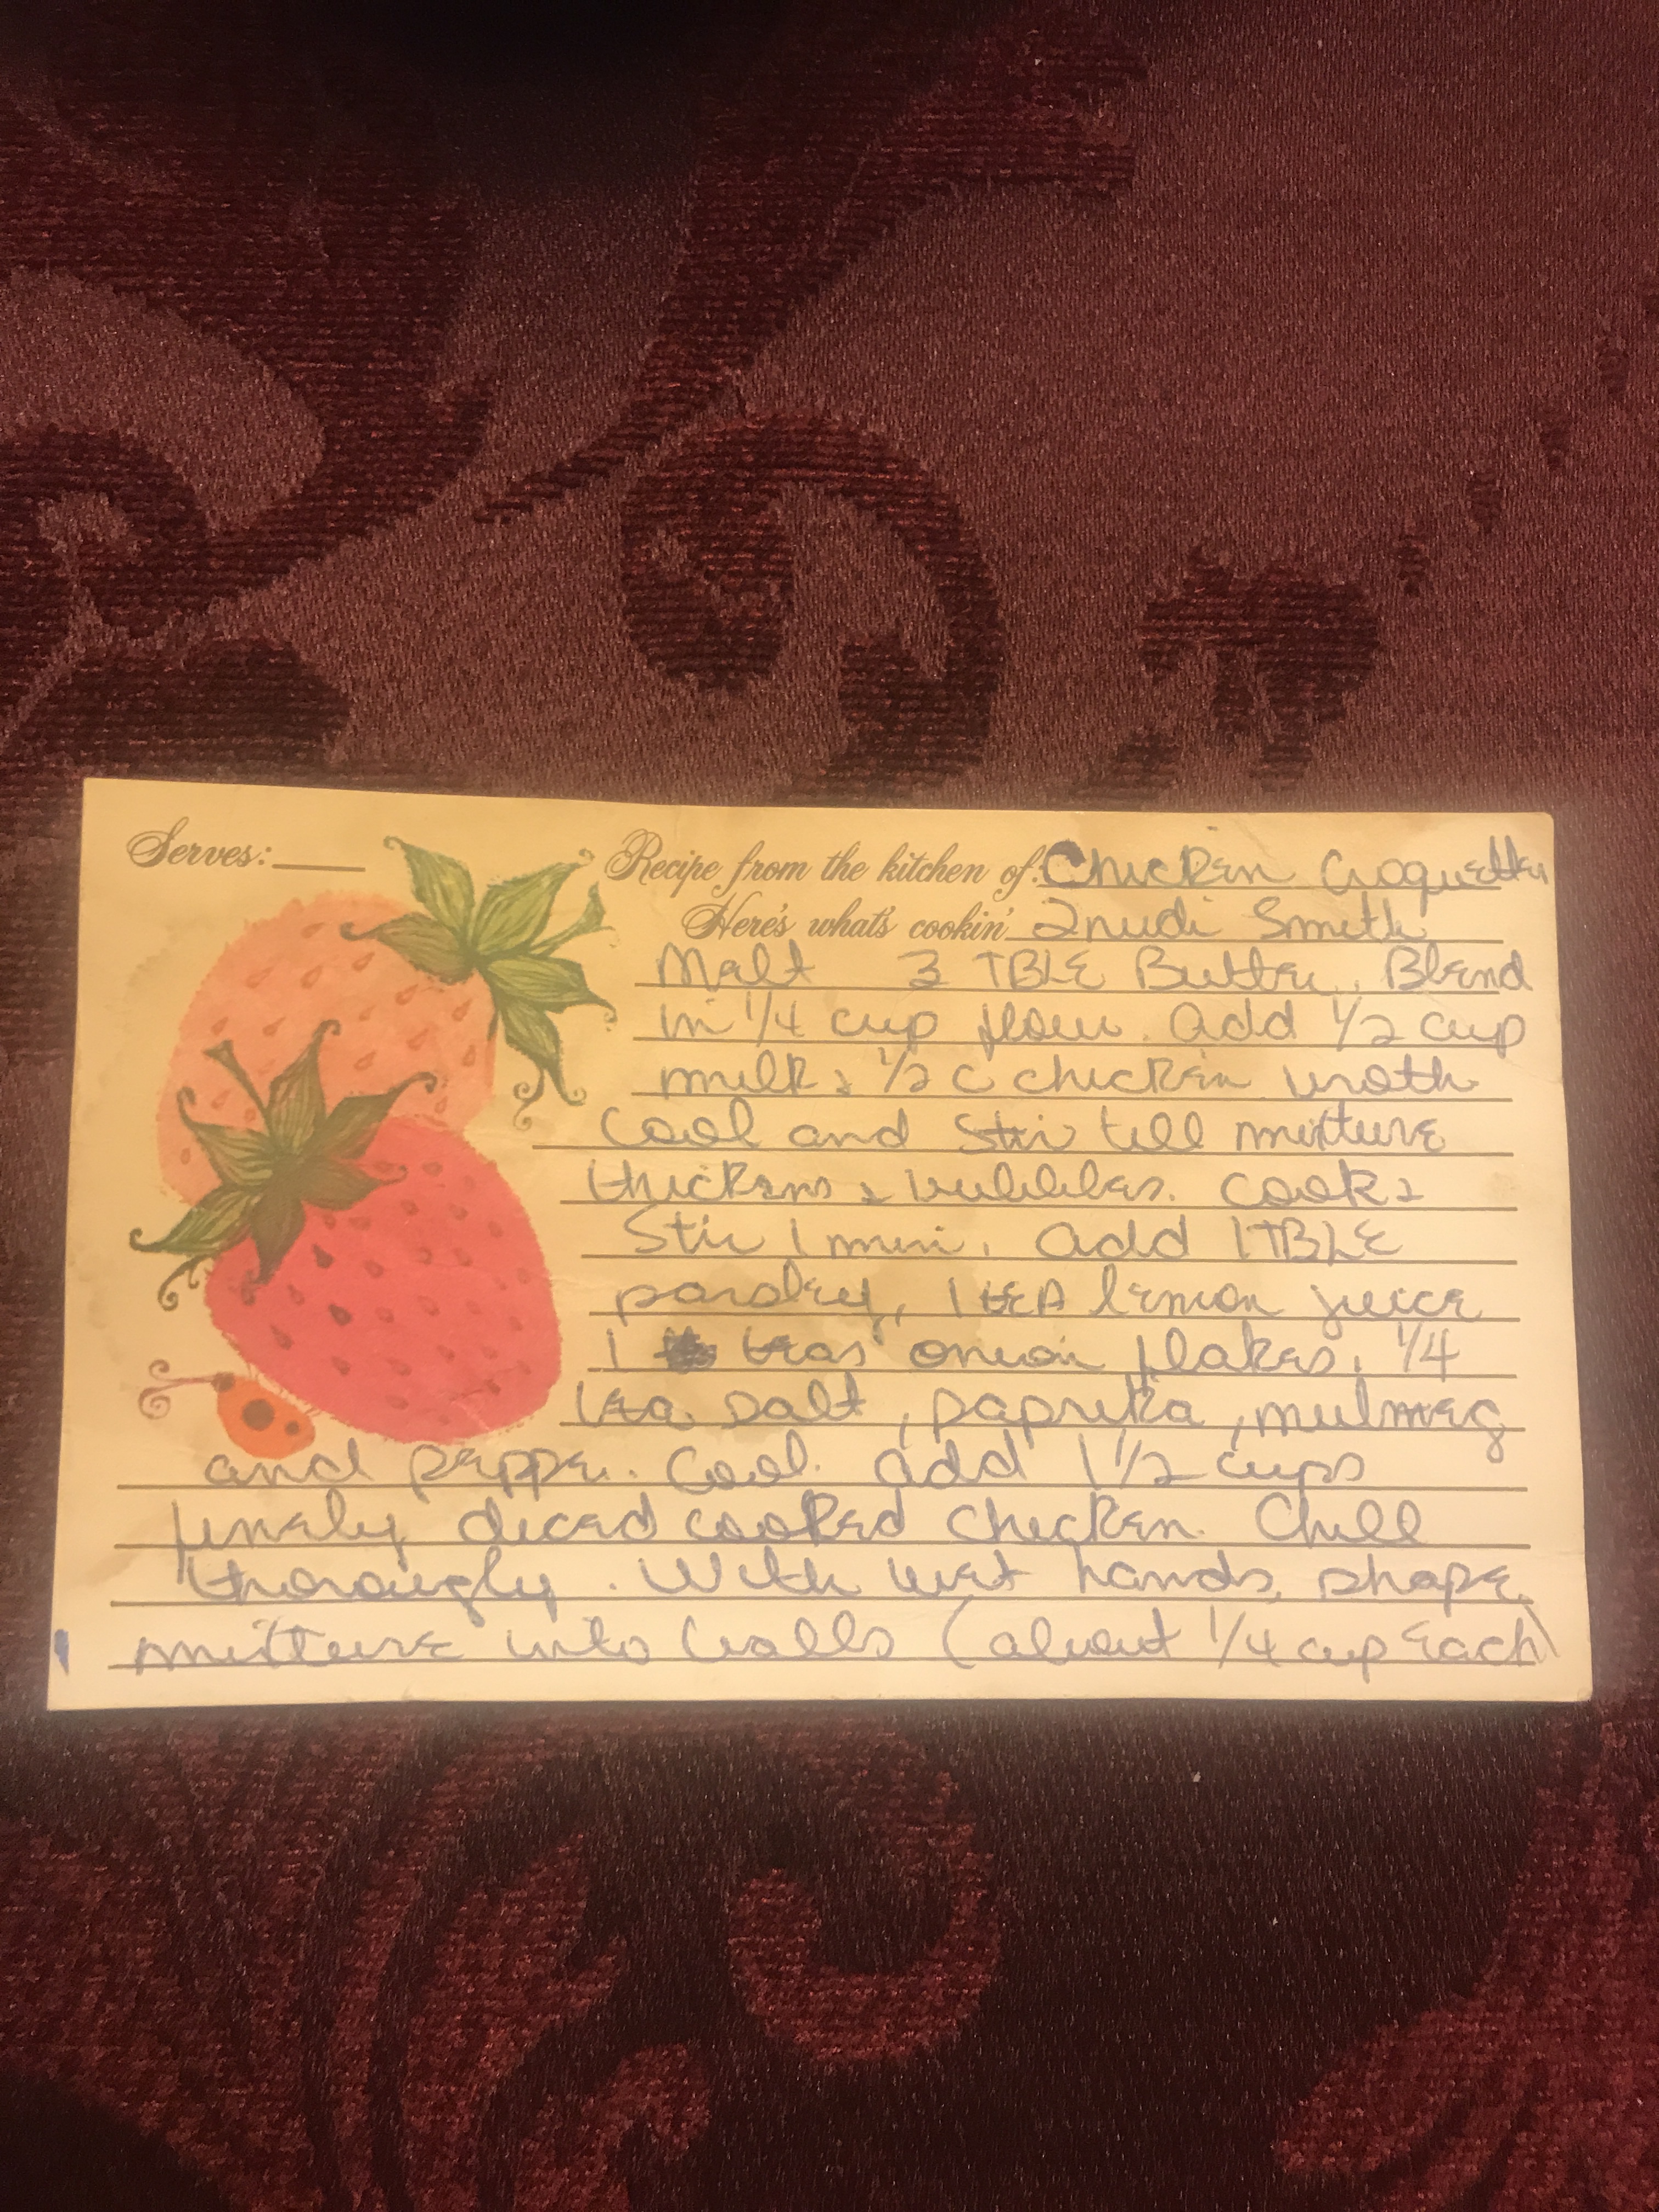 Serves:
Recipe from the kitchen of: Chicken Croquettes
Here's what's cookin' Smith
Melt 3 TBLE Butter. Blend
in 1/4 cup flour. Add 1/2 cup
milk & 1/2 c chicken broth
Cool and Stir till mixture
thickens & bubbles. Cook &
Stir 1 min. Add 1 TBLE
parsley, 1 tEA lemon juice
1 teas onion flakes, 1/4
tea salt, paprika, nutmeg
and pepper. Cool. Add 1 1/2 cups
finely diced cooked chicken. Chill
thorougly. With wet hands, shape
mixture into balls (about 1/4 cup Each)